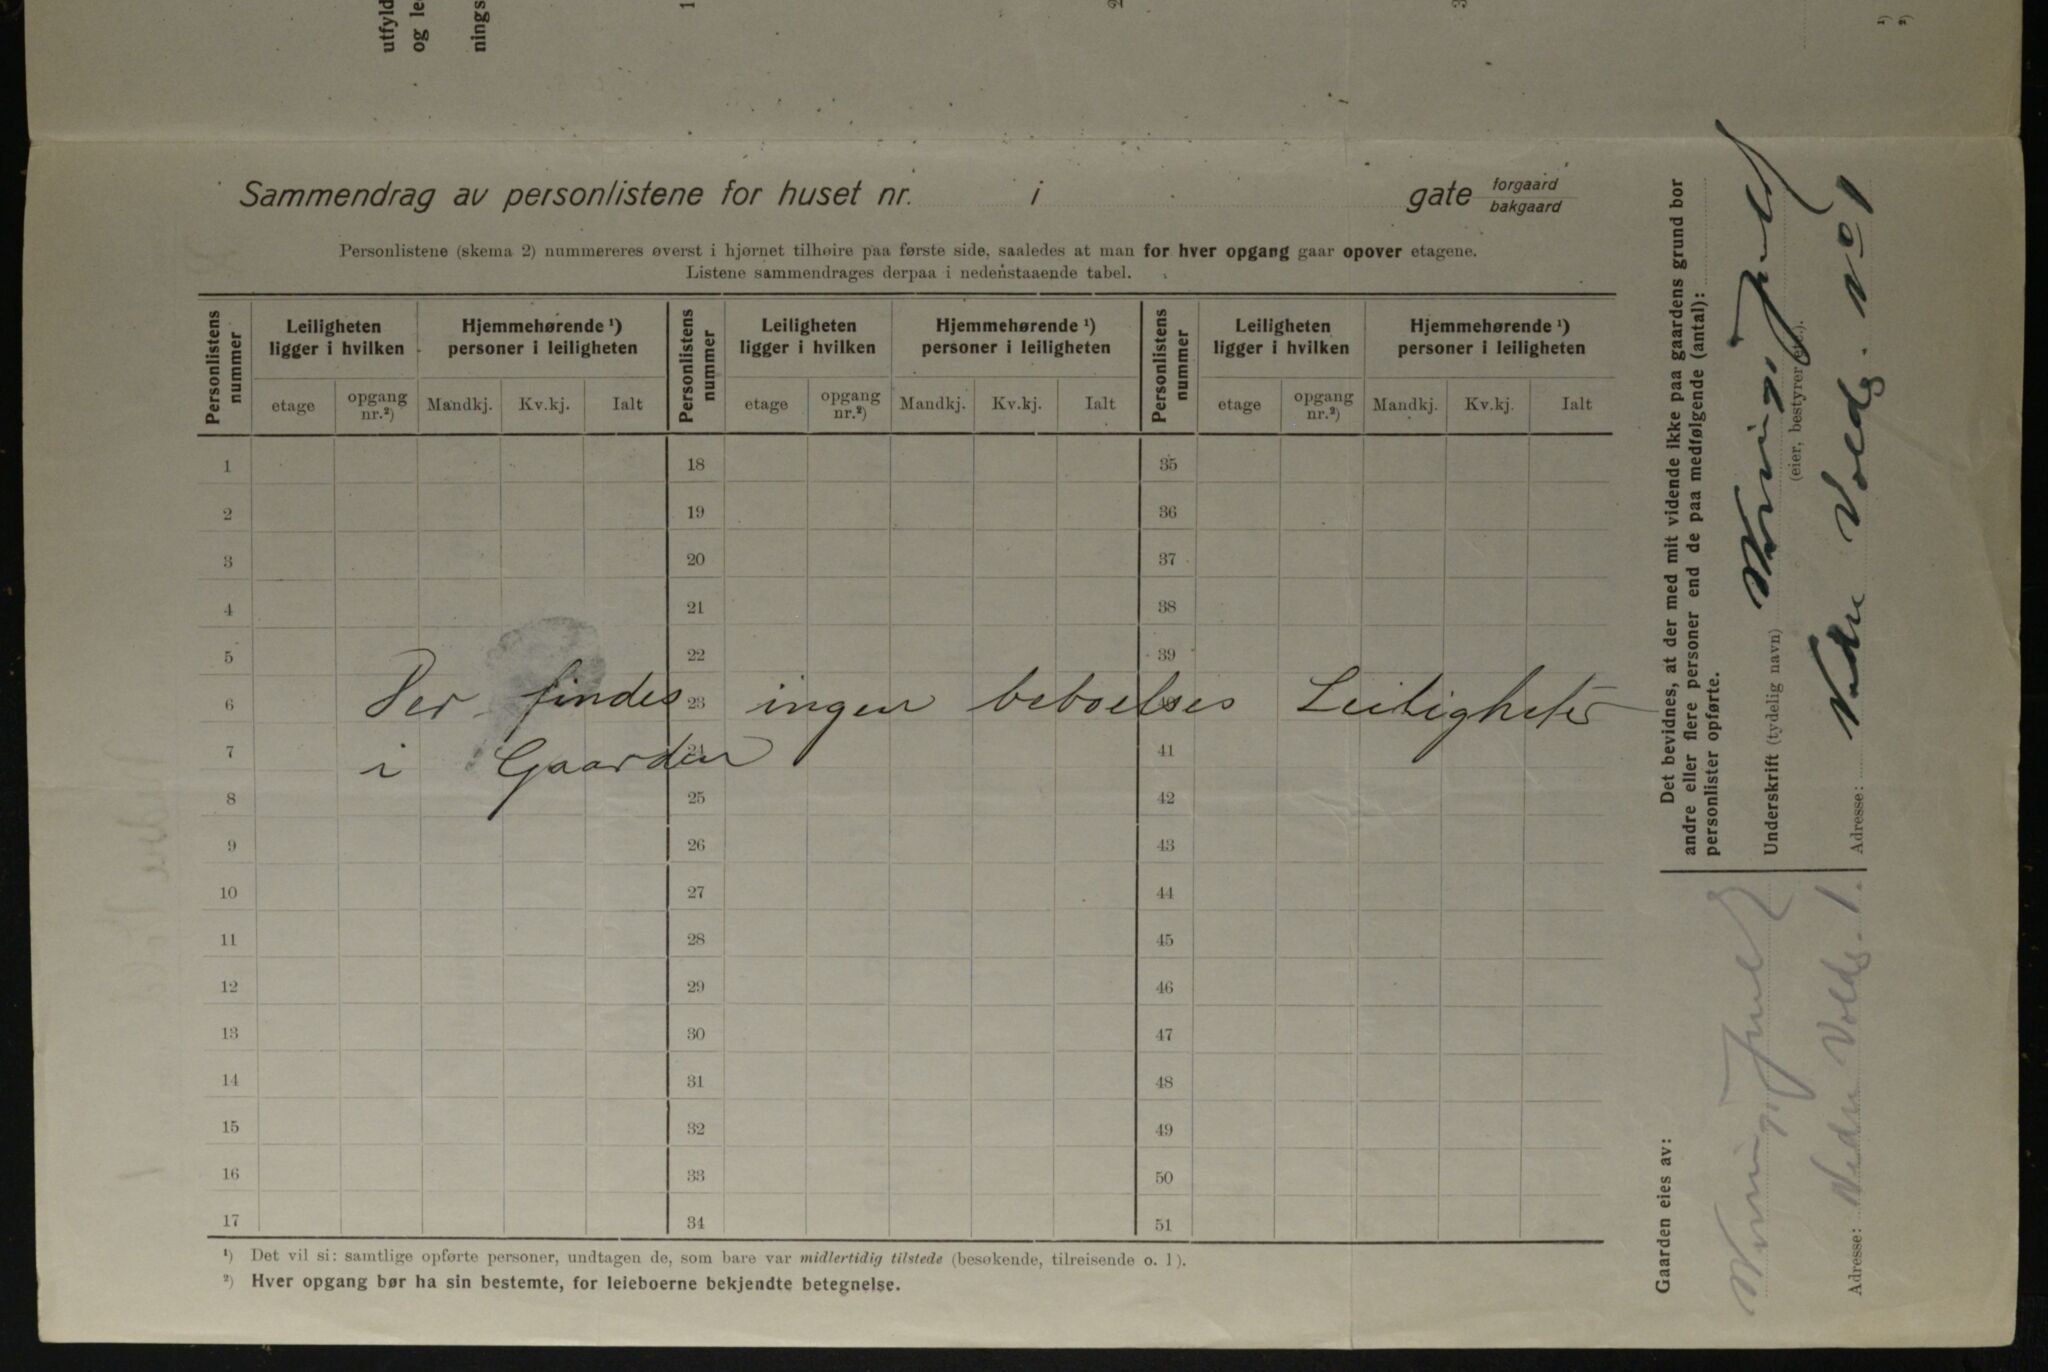 utfyld
og le
nings
1
2
3
¹)
²)
Sammendrag av personlistene for huset nr. i gate forgaard
bakgaard
Personlistene (skema 2) nummereres øverst i hjørnet tilhøire paa første side, saaledes at man for hver opgang gaar opover etagene.
Listene sammendrages derpaa i nedenstaaende tabel.
Personlistens nummer
Leiligheten ligger i hvilken
Hjemmehørende ¹) personer i leiligheten
etage
opgang nr.²)
Mandkj.
Kv.kj.
Ialt
Personlistens nummer
Leiligheten ligger i hvilken
Hjemmehørende ¹) personer i leiligheten
etage
opgang nr.²)
Mandkj.
Kv.kj.
Ialt
Personlistens nummer
Leiligheten ligger i hvilken
Hjemmehørende ¹) personer i leiligheten
etage
opgang nr.²)
Mandkj.
Kv.kj.
Ialt
1 18 35
2 19 36
3 20 37
4 21 38
5 22 39
6 23
Der findes ingen beboelses Leiligheter
7 24 41
i Gaarden
8 25 42
9 26 43
10 27 44
11 28 45
12 29 46
13 30 47
14 31 48
15 32 49
16 33 50
17 34 51
¹) Det vil si: samtlige opførte personer, undtagen de, som bare var midlertidig tilstede (besøkende, tilreisende o. l).
²) Hver opgang bør ha sin bestemte, for leieboerne bekjendte betegnelse.
Det bevidnes, at der med mit vidende ikke paa gaardens grund bor
andre eller flere personer end de paa medfølgende (antal):
personlister opførte.
Underskrift (tydelig navn)
(eier, bestyrer etc.).
Adresse: Nedre Voldg. No 1
Gaarden eies av:
Adresse: Nedre Voldg. 1.